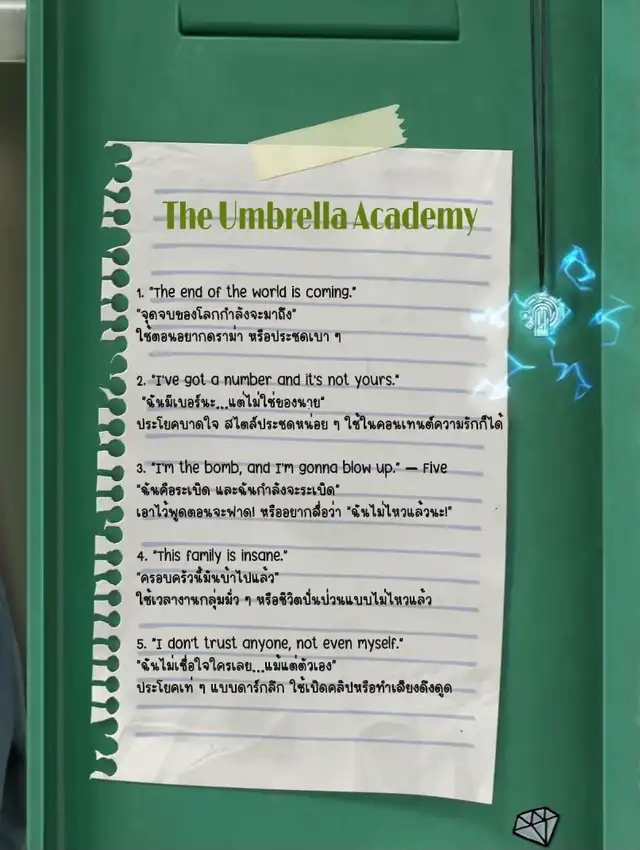 The Umbrella Academy
1. "The end of the world is coming."
"จุดจบของโลกกำลังจะมาถึง"
ใช้ตอนอยากดราม่า หรือประชดเบา ๆ
2. "I've got a number and it's not yours."
"ฉันมีเบอร์นะ...แต่ไม่ใช่ของนาย"
ประโยคบาดใจ สไตล์ประชดหน่อย ๆ ใช้ในคอนเทนต์ความรักก็ได้
3. "I'm the bomb, and I'm gonna blow up." — Five
"ฉันคือระเบิด และฉันกำลังจะระเบิด"
เอาไว้พูดตอนจะฟาด! หรืออยากสื่อว่า "ฉันไม่ไหวแล้วนะ!"
4. "This family is insane."
"ครอบครัวนี้มันบ้าไปแล้ว"
ใช้เวลางานกลุ่มมั่ว ๆ หรือชีวิตปั่นป่วนแบบไม่ไหวแล้ว
5. "I don't trust anyone, not even myself."
"ฉันไม่เชื่อใจใครเลย...แม้แต่ตัวเอง"
ประโยคเท่ ๆ แบบดาร์กลึก ใช้เปิดคลิปหรือทำเสียงดึงดูด